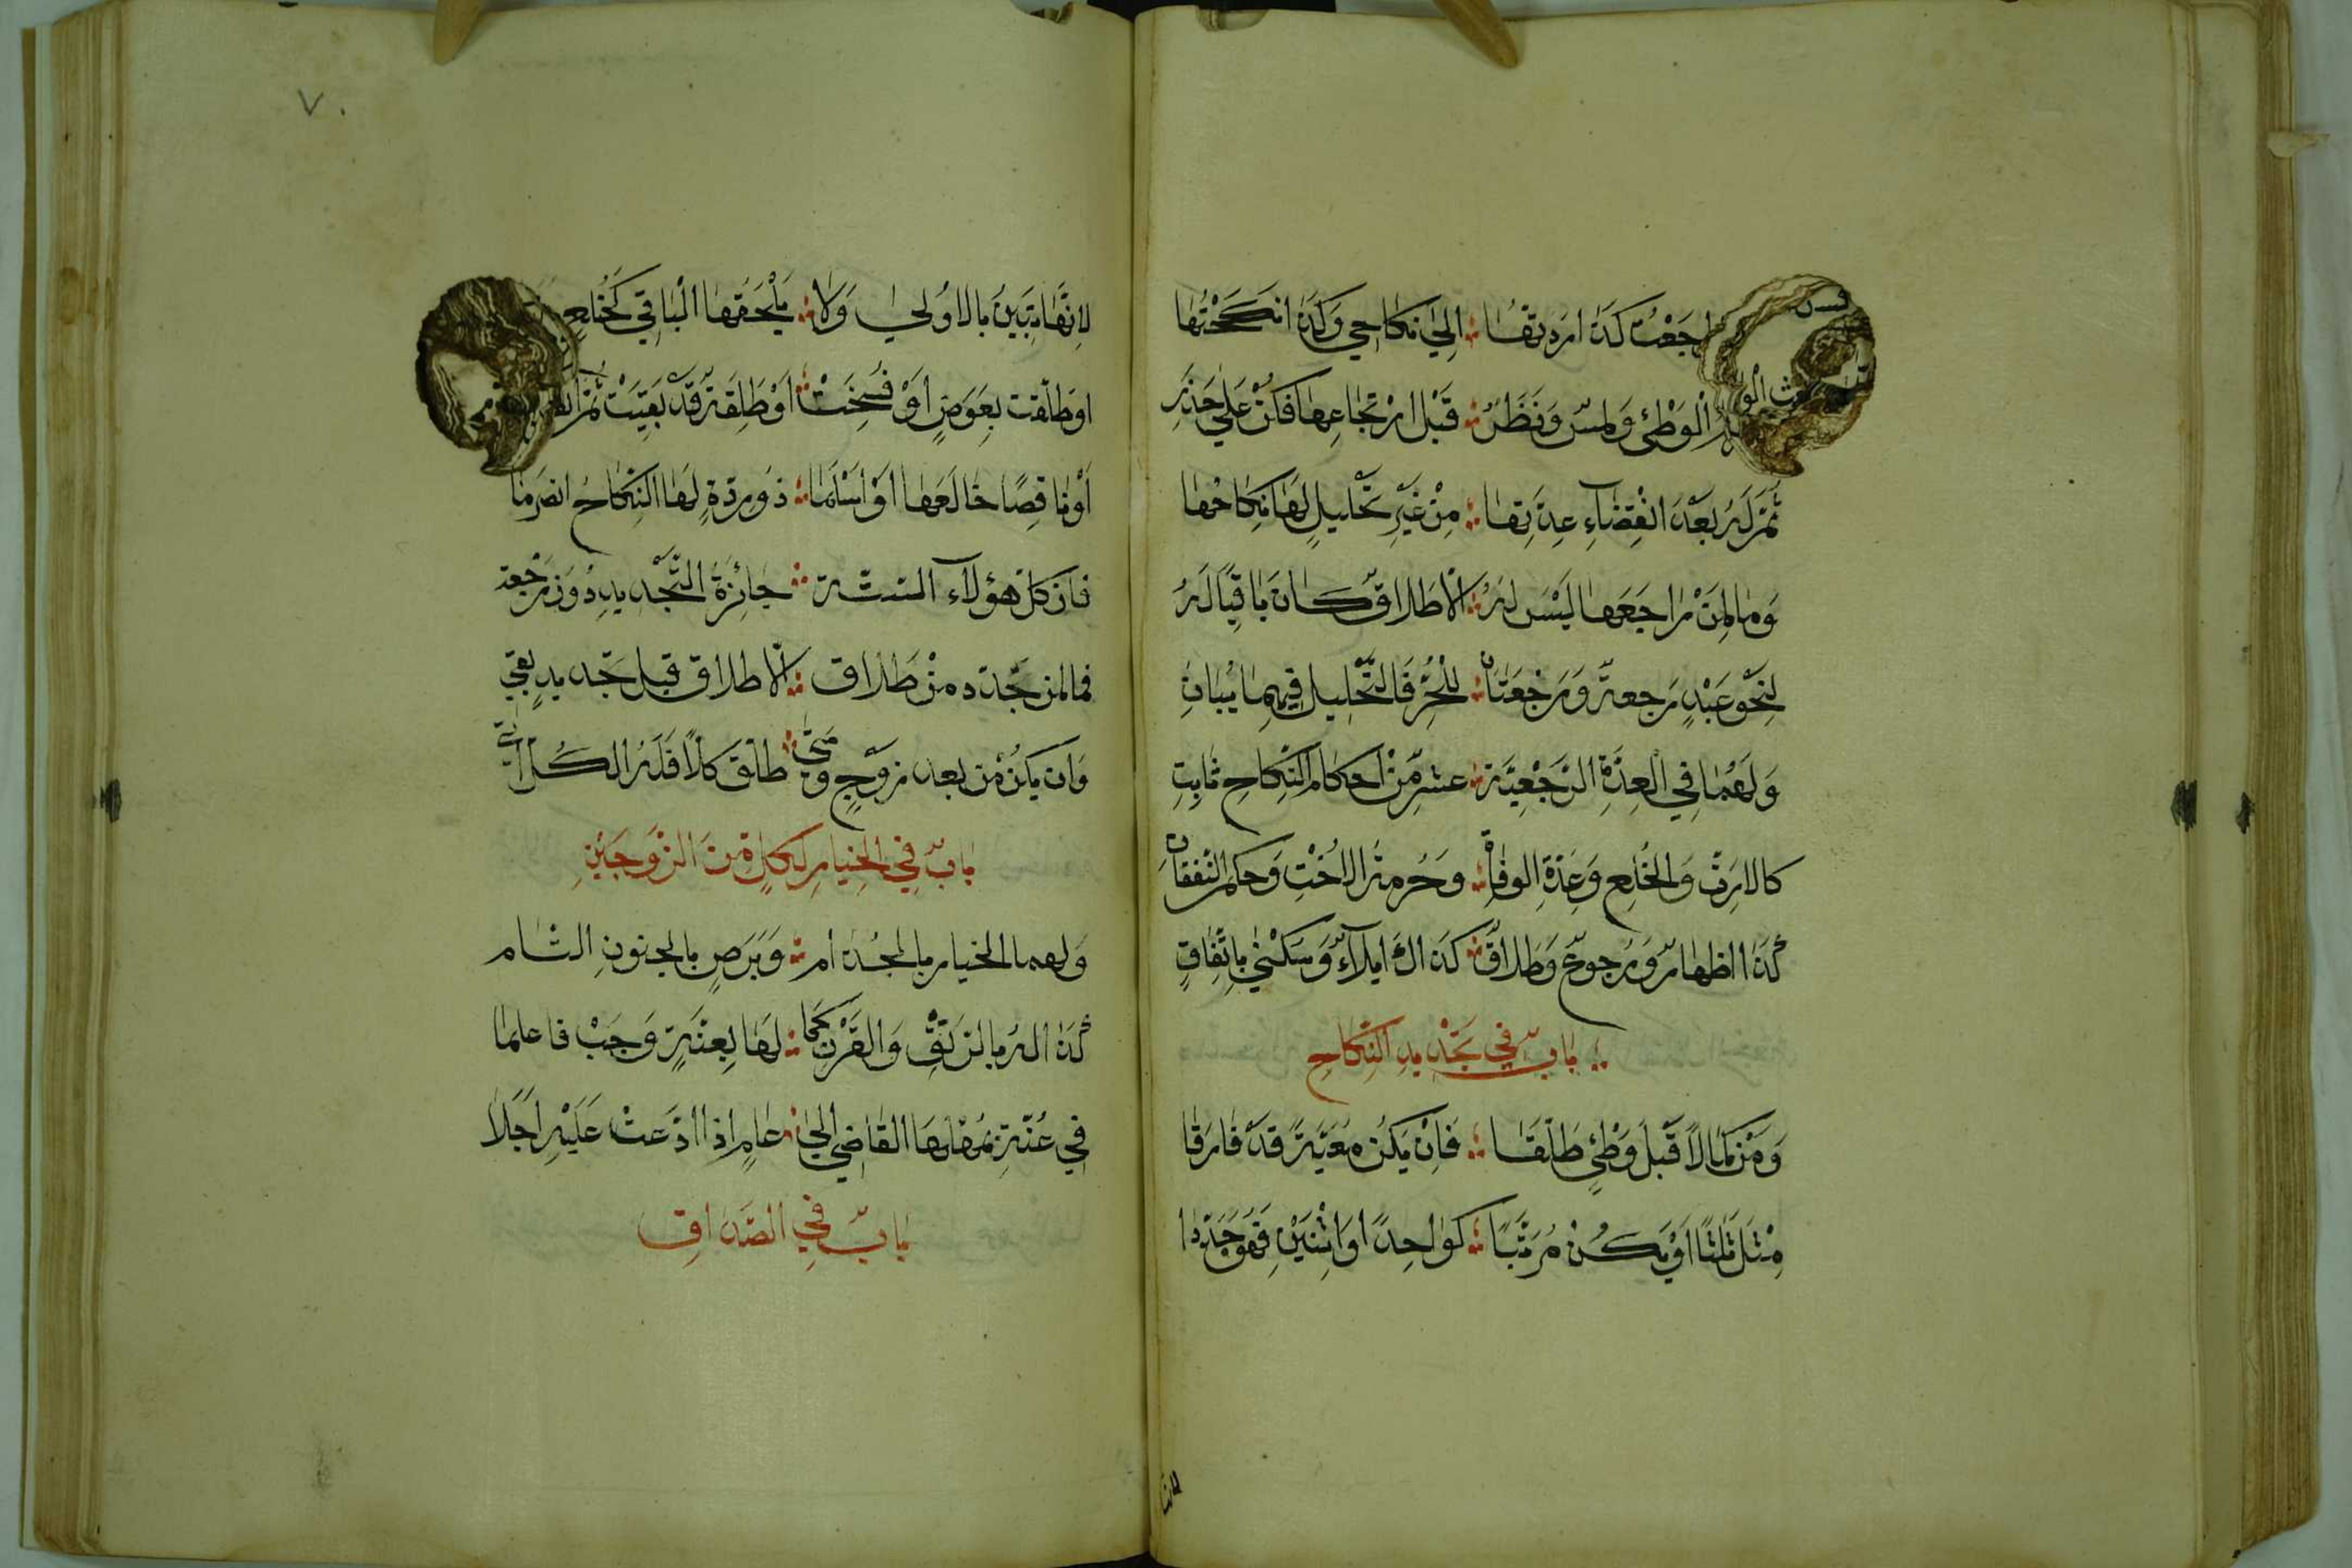 راجعت كذا رددتها ؛ الى نكاحي وكذا نكحتها
الوطئ ولمس ونظر ؛ قبل ارتجاعها فكن على حذر
ثم له بعد انقضاء عدتها ؛ من غير تحليل لها نكاحها
وما لمن راجعها ليس له ؛ الا طلاق كان باقيا له
لنحو عبد رجعة ورجعتان ؛ للحر فالتحليل فيهما يبان
ولهما في العدة الرجعية ؛ عشر من احكام النكاح ثابت
كالارث والخلع وعدة الوفاة ؛ وحرمة الاخت وحكم النفقات
كذا اظهار ورجوع وطلاق ؛ كذاك ايلاء وسكنى باتفاق
باب في تجديد النكاح
ومن كمالا قبل وطئ طلقا ؛ فان يكن معية قد فارقا
مثل ثلثا او يكن مرتبا ؛ كواحد او اثنين فهو جددا
لانها
٧٠
لانها تبين بالاولى ولا ؛ يلحقها الباقي كخلع
او طلقت بعوض او فسخت ؛ او طلقة قد بقيت ثم
او ناقصا خالعها او اسلما ؛ ذو ردة لها النكاح انصرما
فان كل هؤلاء الستة ؛ جائزة التجديد دون رجعة
فما لمن جدده من طلاق ؛ الا طلاق قبل تجديد بقي
وان يكن من بعد زوج ومتى ؛ طلق كلا فله الكل اتى
باب في الخيار لكل من الزوجين
ولهما الخيار بالجذام ؛ وبرص بالجنون التام
كذا له بالرتق والقرن كما ؛ لها بعنة وجب فاعلما
في عنة يمهلها القاضي الى ؛ عام اذا ادعت عليه اجلا
باب في الصداق